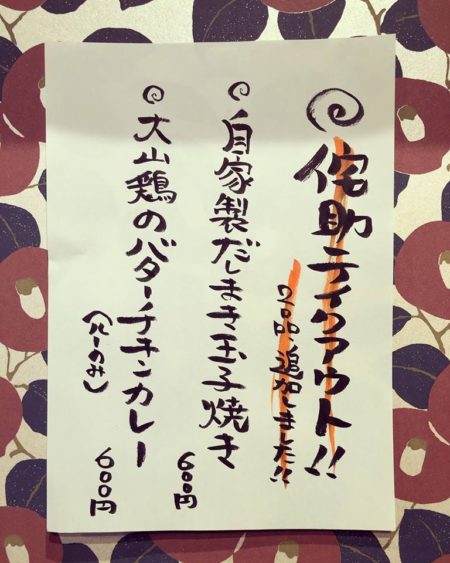 侘助テイクアウト!!
2品追加しました!!
自家製だしまき玉子焼き
600円
大山鶏のバターチキンカレー
(ルーのみ)
600円